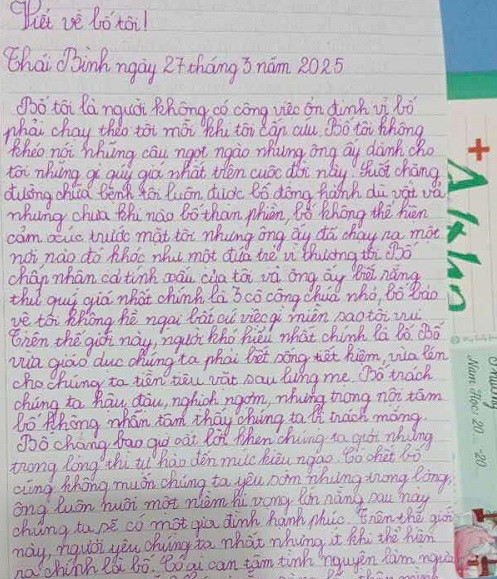 Viết về bố tôi!
Thái Bình ngày 27 tháng 3 năm 2025
Bố tôi là người không có công việc ổn định vì bố
phải chạy theo tôi mỗi khi tôi cấp cứu. Bố tôi không
khéo nói những câu ngọt ngào nhưng ông ấy dành cho
tôi những gì quý giá nhất trên cuộc đời này. Suốt chặng
đường chữa bệnh tôi luôn được bố đồng hành dù vất vả
nhưng chưa khi nào bố than phiền, bố không thể hiện
cảm xúc trước mặt tôi nhưng ông ấy đã chạy ra một
nơi nào đó khóc như một đứa trẻ vì thương tôi. Bố
chấp nhận cá tính xấu của tôi và ông ấy biết rằng
thứ quý giá nhất chính là 3 cô công chúa nhỏ, bố bảo
vệ tôi không hề ngại bất cứ việc gì miễn sao tôi vui
Trên thế giới này, người khó hiểu nhất chính là bố. Bố
vừa giáo dục chúng ta phải biết sống tiết kiệm, vừa lén
cho chúng ta tiền tiêu vặt sau lưng mẹ. Bố trách
chúng ta hậu đậu, nghịch ngợm, nhưng trong nội tâm
bố không nhẫn tâm thấy chúng ta bị trách mắng.
Bố chẳng bao giờ cất lời khen chúng ta giỏi nhưng
trong lòng thì tự hào đến mức kiêu ngạo. Có chết bố
cũng không muốn chúng ta yêu sớm nhưng trong lòng,
ông luôn nuôi một niềm hi vọng lớn rằng sau này
chúng ta sẽ có một gia đình hạnh phúc. Trên thế giới
này, người yêu chúng ta nhất nhưng ít khi thể hiện
ra chính là bố. Có ai can tâm tình nguyện làm ngựa